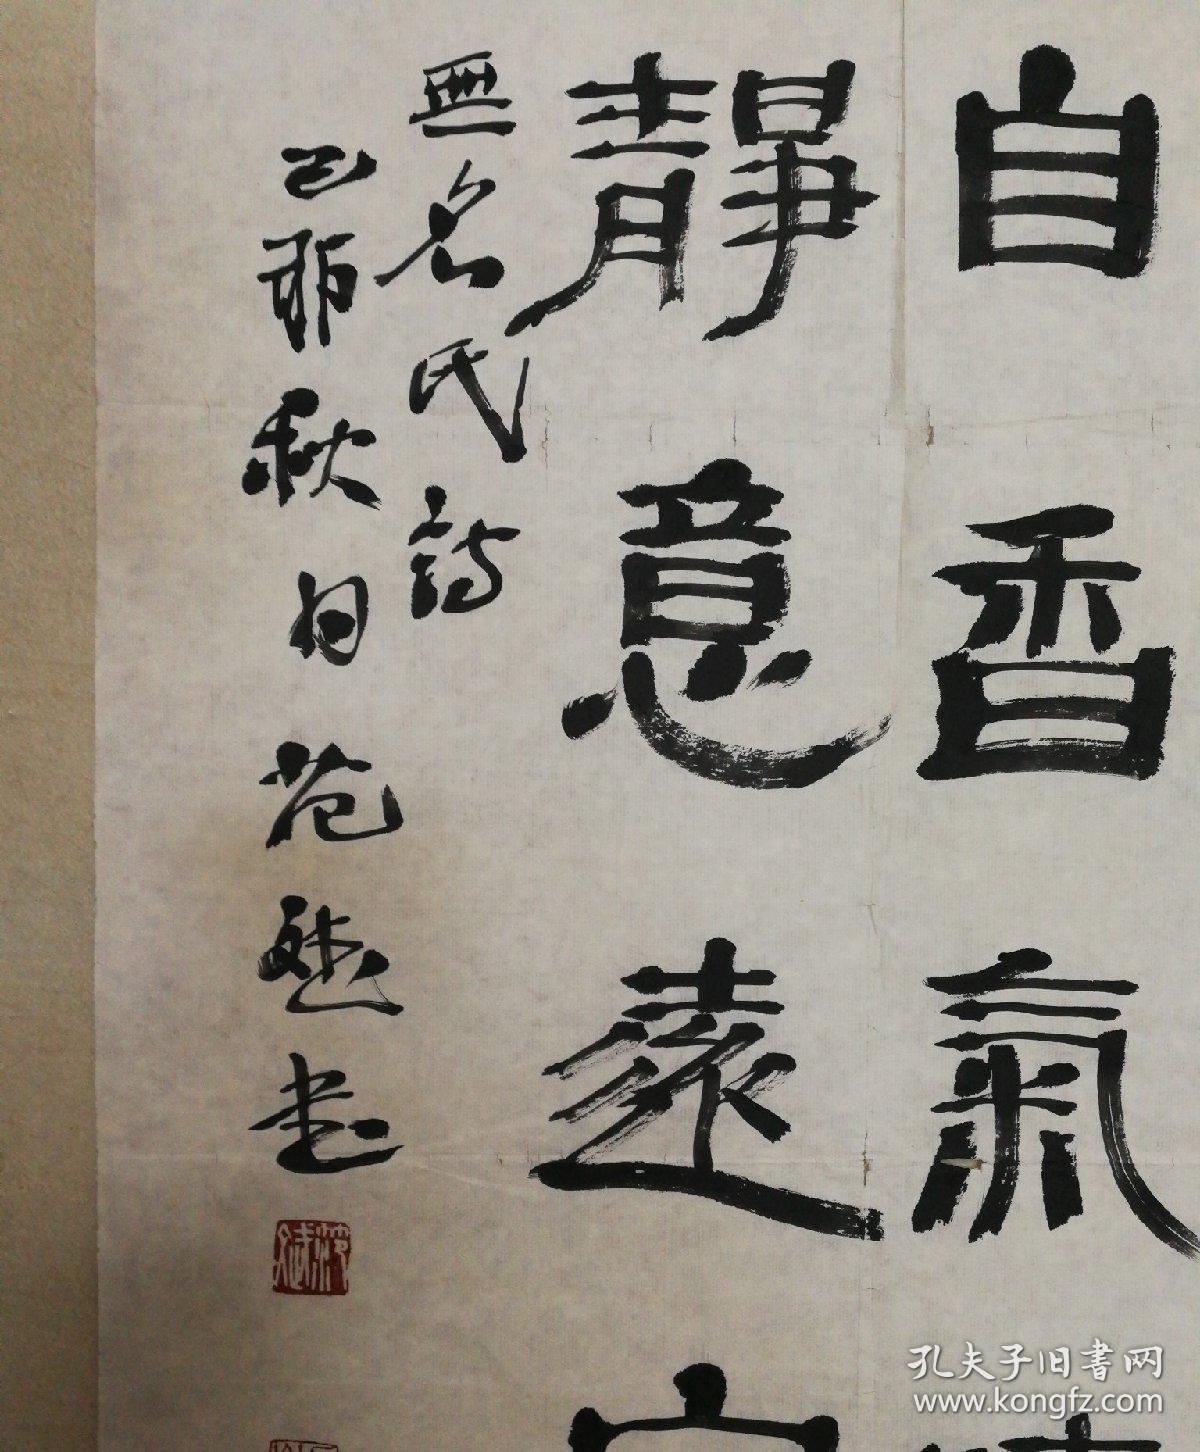 自香氣
靜意遠
無名氏詩
己卯秋日范斌書
孔夫子旧書网
www.kongfz.com